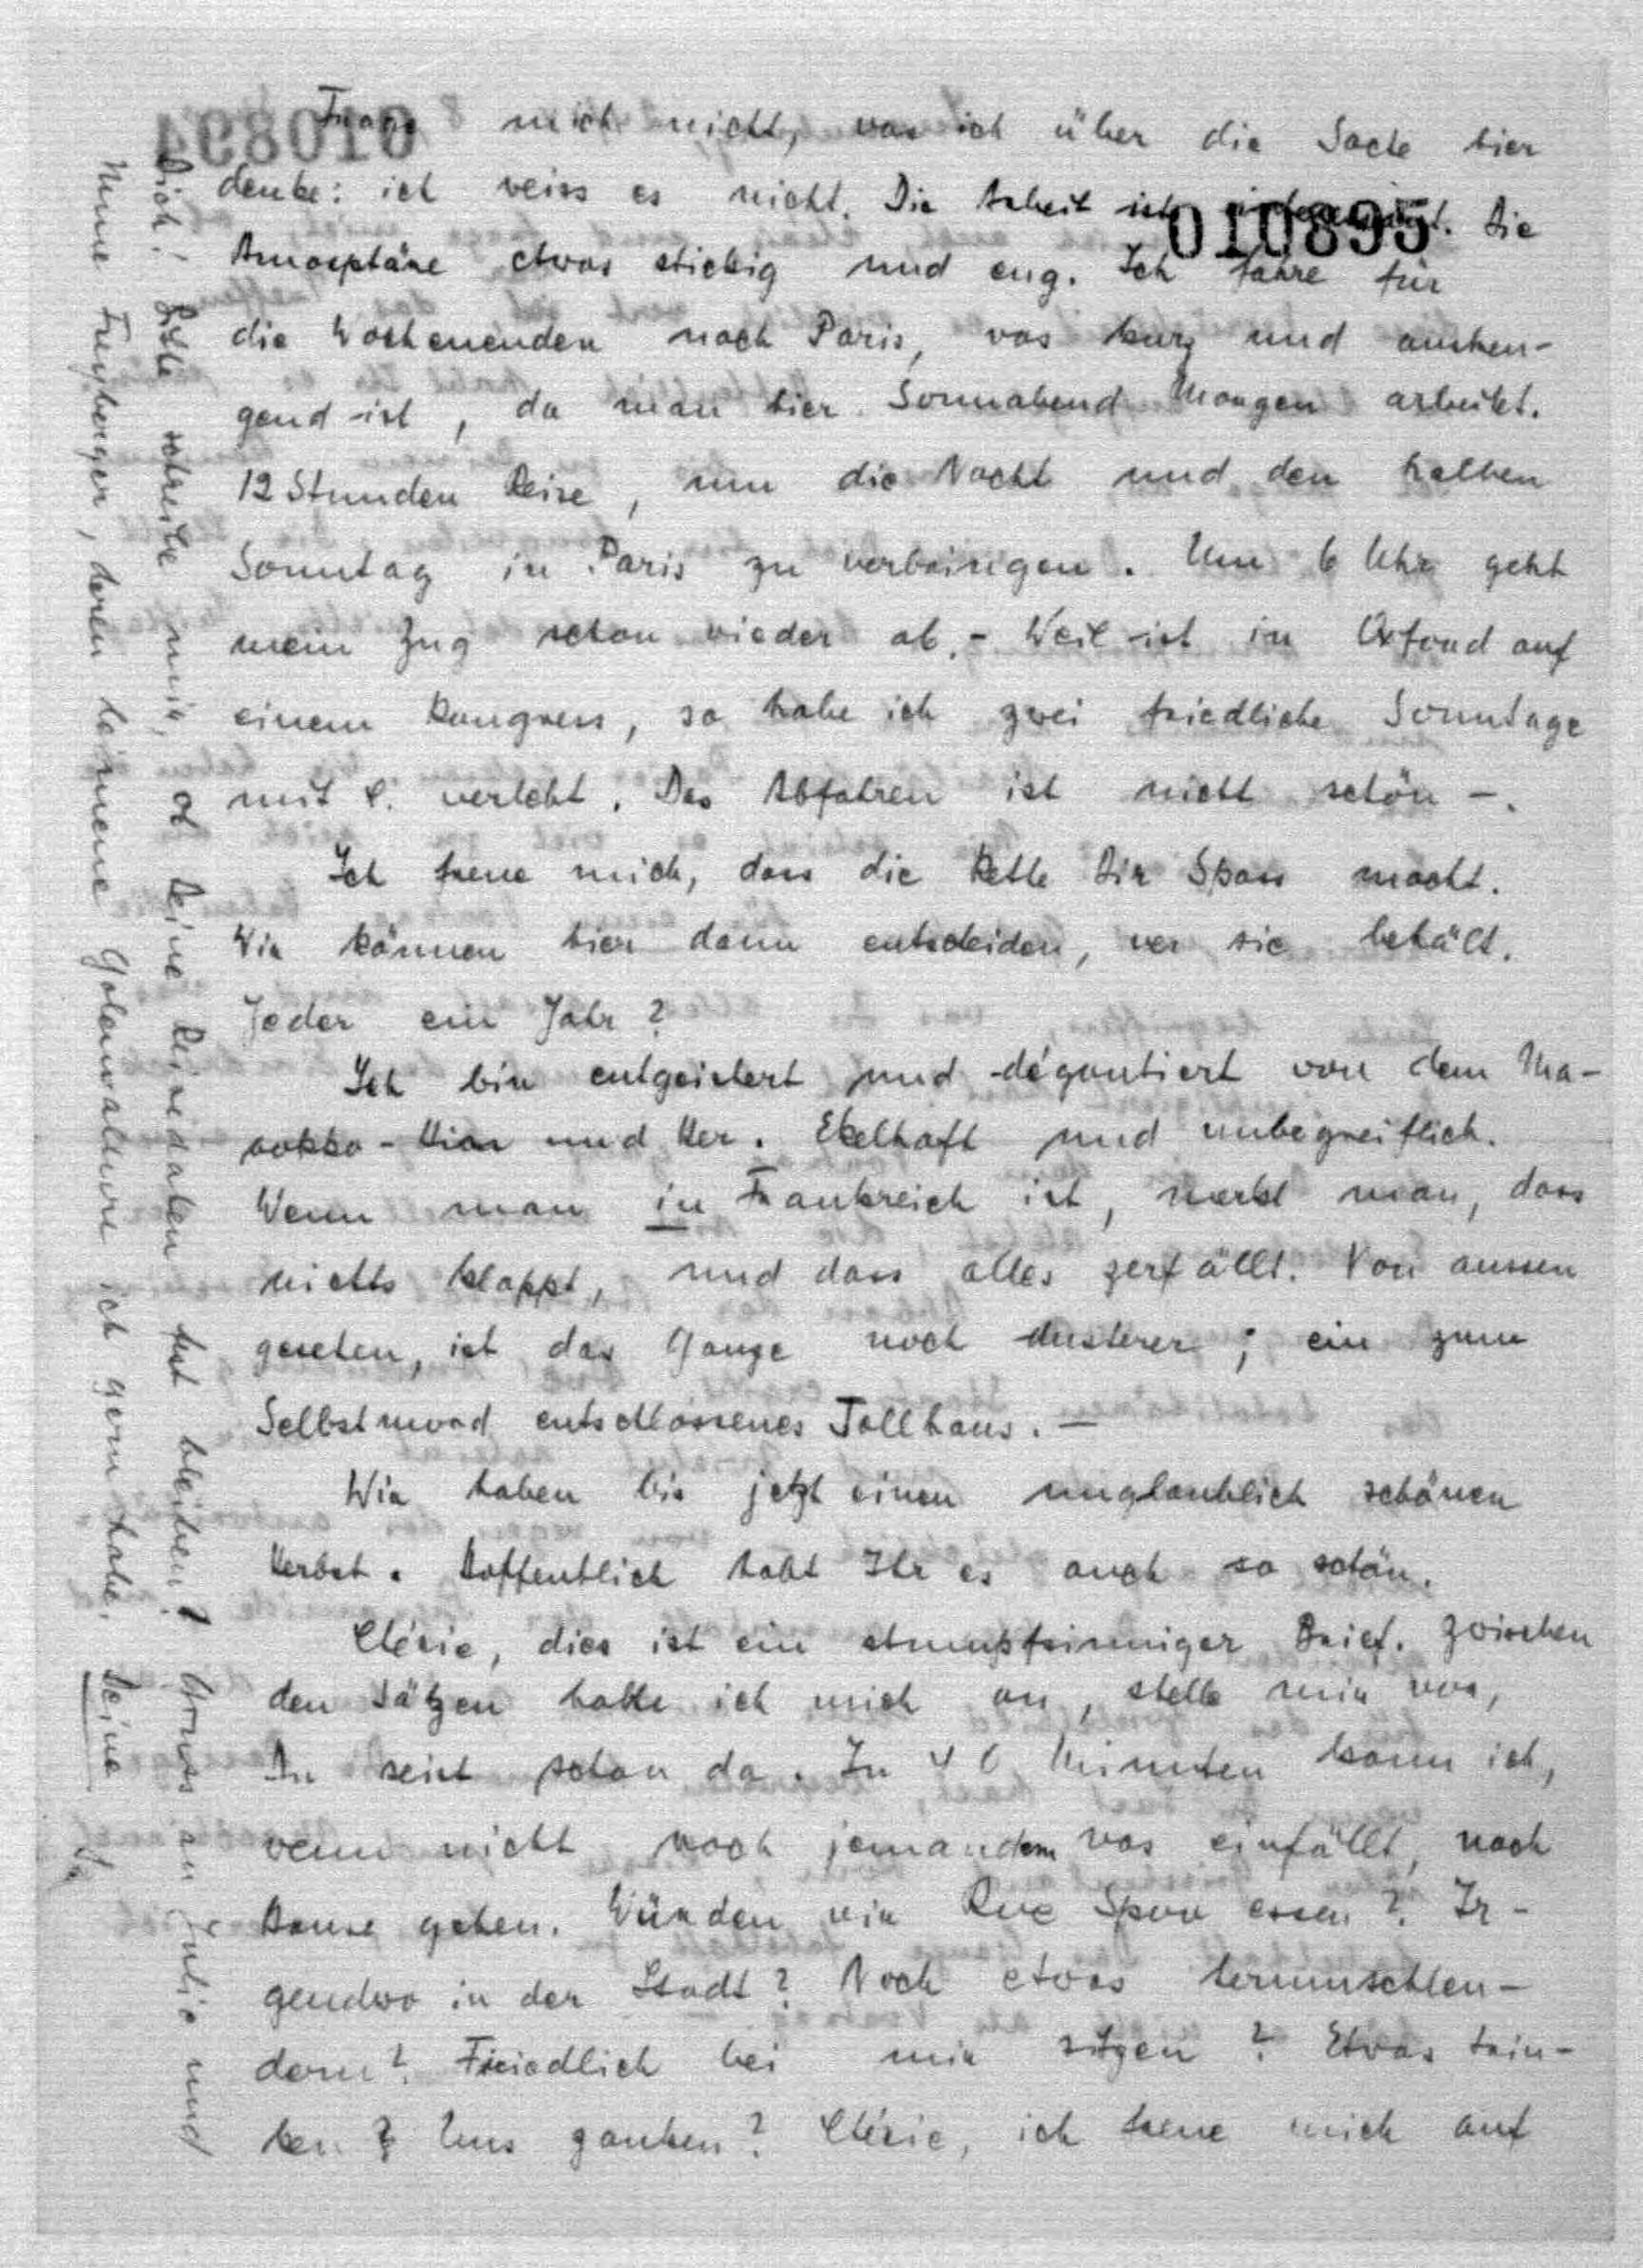 Frage mich nicht, was ich über die Sache hier
denke: ich weiss es nicht. Die Arbeit ist interessant. Die
010895
Atmosphäre etwas stickig und eng. Ich fahre für
die Wochenenden nach Paris, was kurz und anstren-
gend ist, da man hier Sonnabend Morgen arbeitet.
12 Stunden Reise, um die Nacht und den halben
Sonntag in Paris zu verbringen. Um 6 Uhr geht
mein Zug schon wieder ab. - Weil ist in Oxford auf
einem Kongress, so habe ich zwei friedliche Sonntage
mit C. verlebt. Das Abfahren ist nicht schön -.
Ich freue mich, dass die Kette Dir Spass macht.
Wir können hier dann entscheiden, wer sie behält.
Jeder ein Jahr?
Ich bin entgeistert und dégoutiert von dem Ma-
rokko - Hin und Her. Ekelhaft und unbegreiflich.
Wenn man in Frankreich ist, merkt man, dass
nichts klappt, und dass alles zerfällt. Von aussen
gesehen, ist das Ganze noch dusterer; ein zum
Selbstmord entschlossenes Tollhaus. -
Wir haben bis jetzt einen unglaublich schönen
Herbst. Hoffentlich habt Ihr es auch so schön.
Chérie, dies ist ein stumpfsinniger Brief. Zwischen
den Sätzen halte ich mich an, stelle mir vor,
Du seist schon da. In 40 Minuten kann ich,
wenn nicht noch jemandem was einfällt, nach
Hause gehen. Würden wir Rue Spoo essen? Ir-
gendwo in der Stadt? Noch etwas herumschlen-
dern? Friedlich bei mir sitzen? Etwas trin-
ken? Uns zanken? Chérie, ich freue mich auf
Dich! Bitte schreibe mir, ob Deine Reisedaten fest bleiben? Grüss an Julie und
Anne Fuyberger, deren Leinene Golemwaldure ich gern habe. Deine
Ja